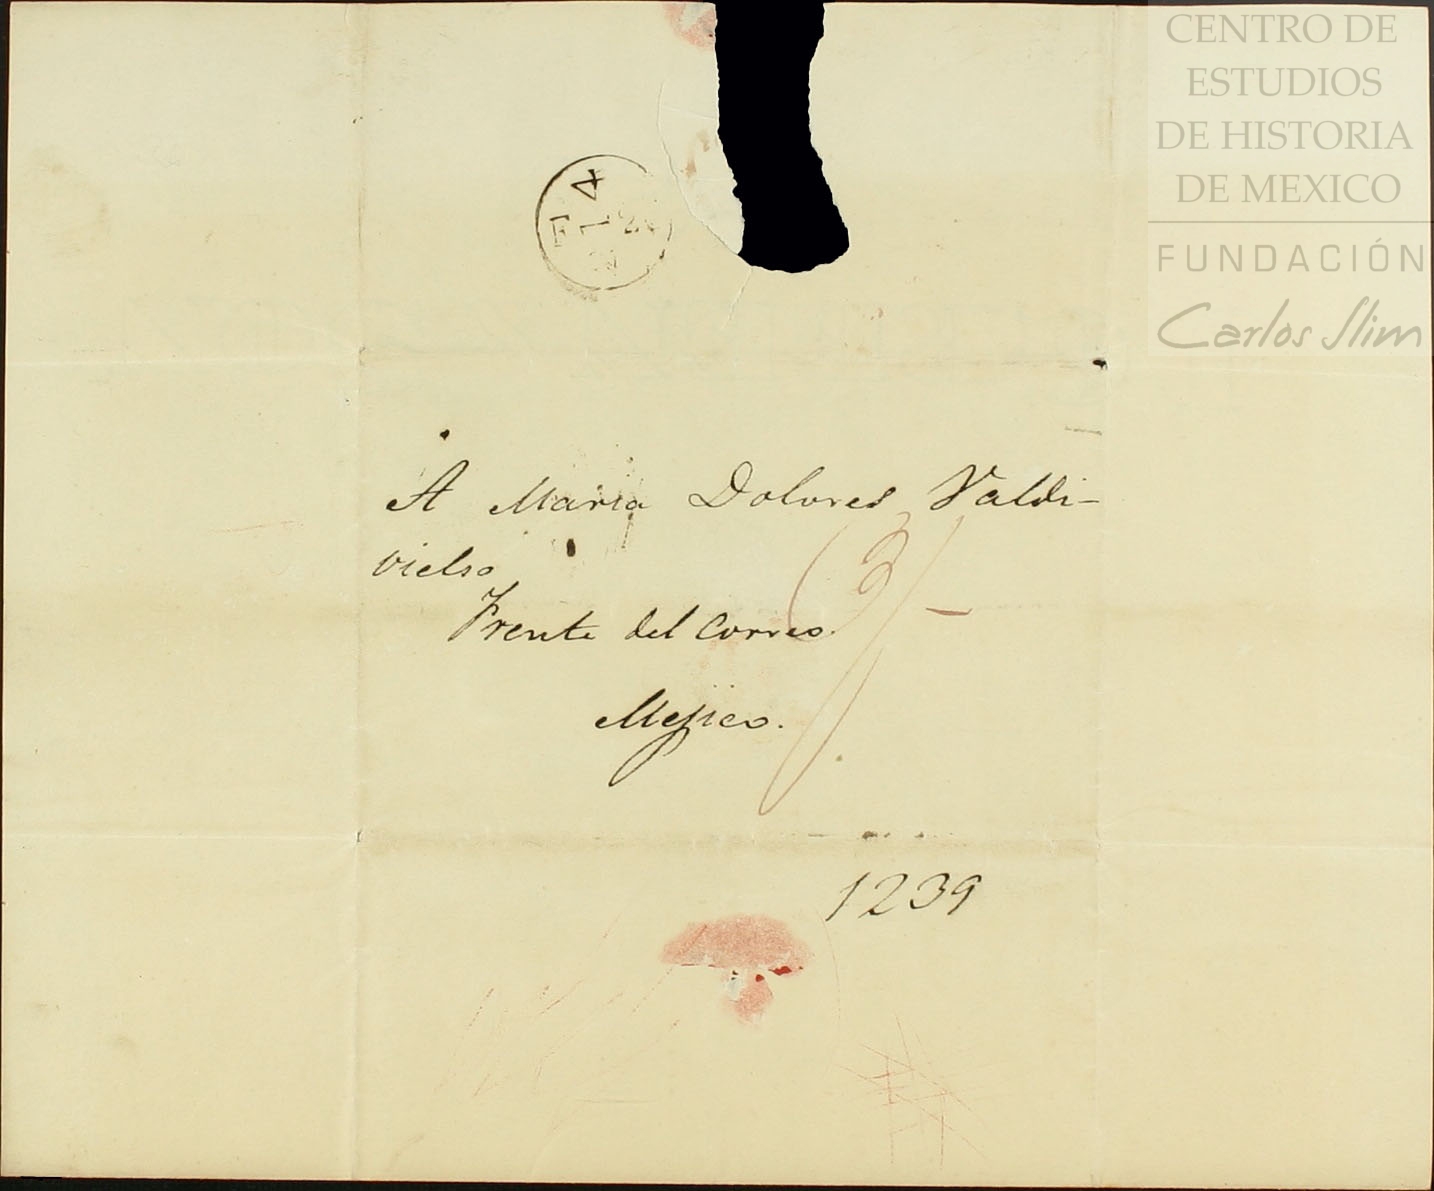 CENTRO DE
ESTUDIOS
DE HISTORIA
DE MEXICO
FUNDACIÓN
Carlos Slim
4
A Maria Dolores Valdi-
vielso
Frente del Correo.
Mejico.
1239